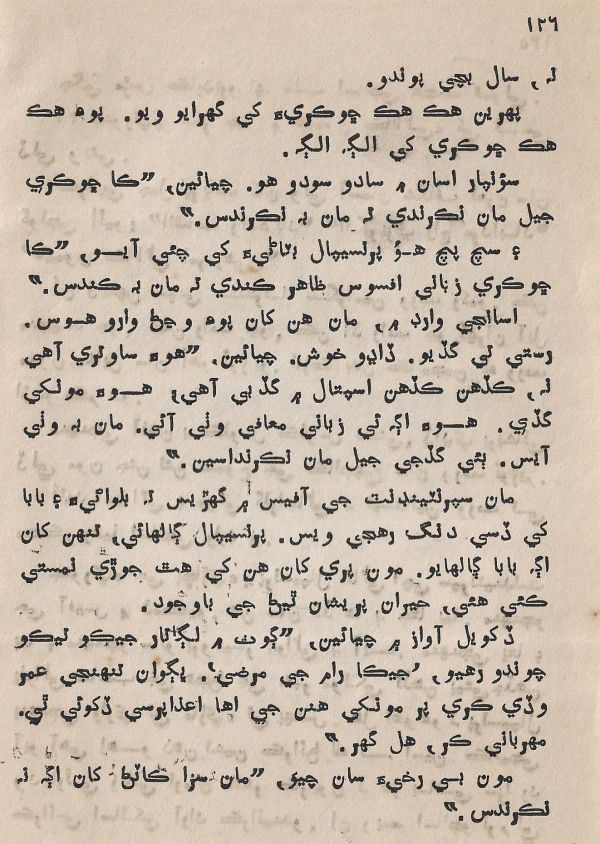 ١٢٦
ته، سال بچي پوندو.
پهرين هڪ هڪ ڇوڪريءَ کي گھرايو ويو. پوءِ هڪ
هڪ ڇوڪري کي الڳ الڳ.
سؤنپار اسان ۾ سادو سودو هو. چيائين، ”ڪا ڇوڪري
جيل مان نڪرندي ته مان به نڪرندس.“
۽ سچ پچ هـؤ پرنسيپال بٽاڻيءَ کي چئي آيـو، ”ڪا
ڇوڪري زباني افسوس ظاهر ڪندي ته مان به ڪندس.“
اسانجي وارڊ ۾، مان هن کان پوءِ وڃڻ وارو هـوس.
رستي تي گڏيو. ڏاڍو خوش. چيائين، ”هوءَ ساوتري آهي
نه، ڪڏهن ڪڏهن اسپتال ۾ گڏبي آهي؛ هـوءَ مونکي
گڏي. هـوءَ اڳ ئي زباني معافي وٺي آئي. مان به وٺي
آيس. ٻئي گڏجي جيل مان نڪرنداسين.“
مان سپرنٽينڊنٽ جي آفيس ۾ گھڙيس ته ٻلوائيءَ ۽ بابا
کي ڏسي دنگ رهجي ويس. پرنسيپال ڳالهائي، تنهن کان
اڳ بابا ڳالهايو. مون پري کان هن کي هٿ جوڙي نمستي
ڪئي هئي، حيران پريشان ٿيڻ جي باوجود.
ڏکويل آواز ۾ چيائين، ”ڳوٺ ۾ لڳاتار جيڪو ٽيڪو
چوندو رهيو، ’جيڪا رام جي مرضي‘. ڀڳوان تنهنجي عمر
وڏي ڪري پر مونکي هنن جي اها اعذاپرسي ڏکوئي ٿي.
مهرباني ڪر، هل گھر.“
مون بي رخيءَ سان چيو، ”مان سزا ڪاٽڻ کان اڳ نه
نڪرندس.“